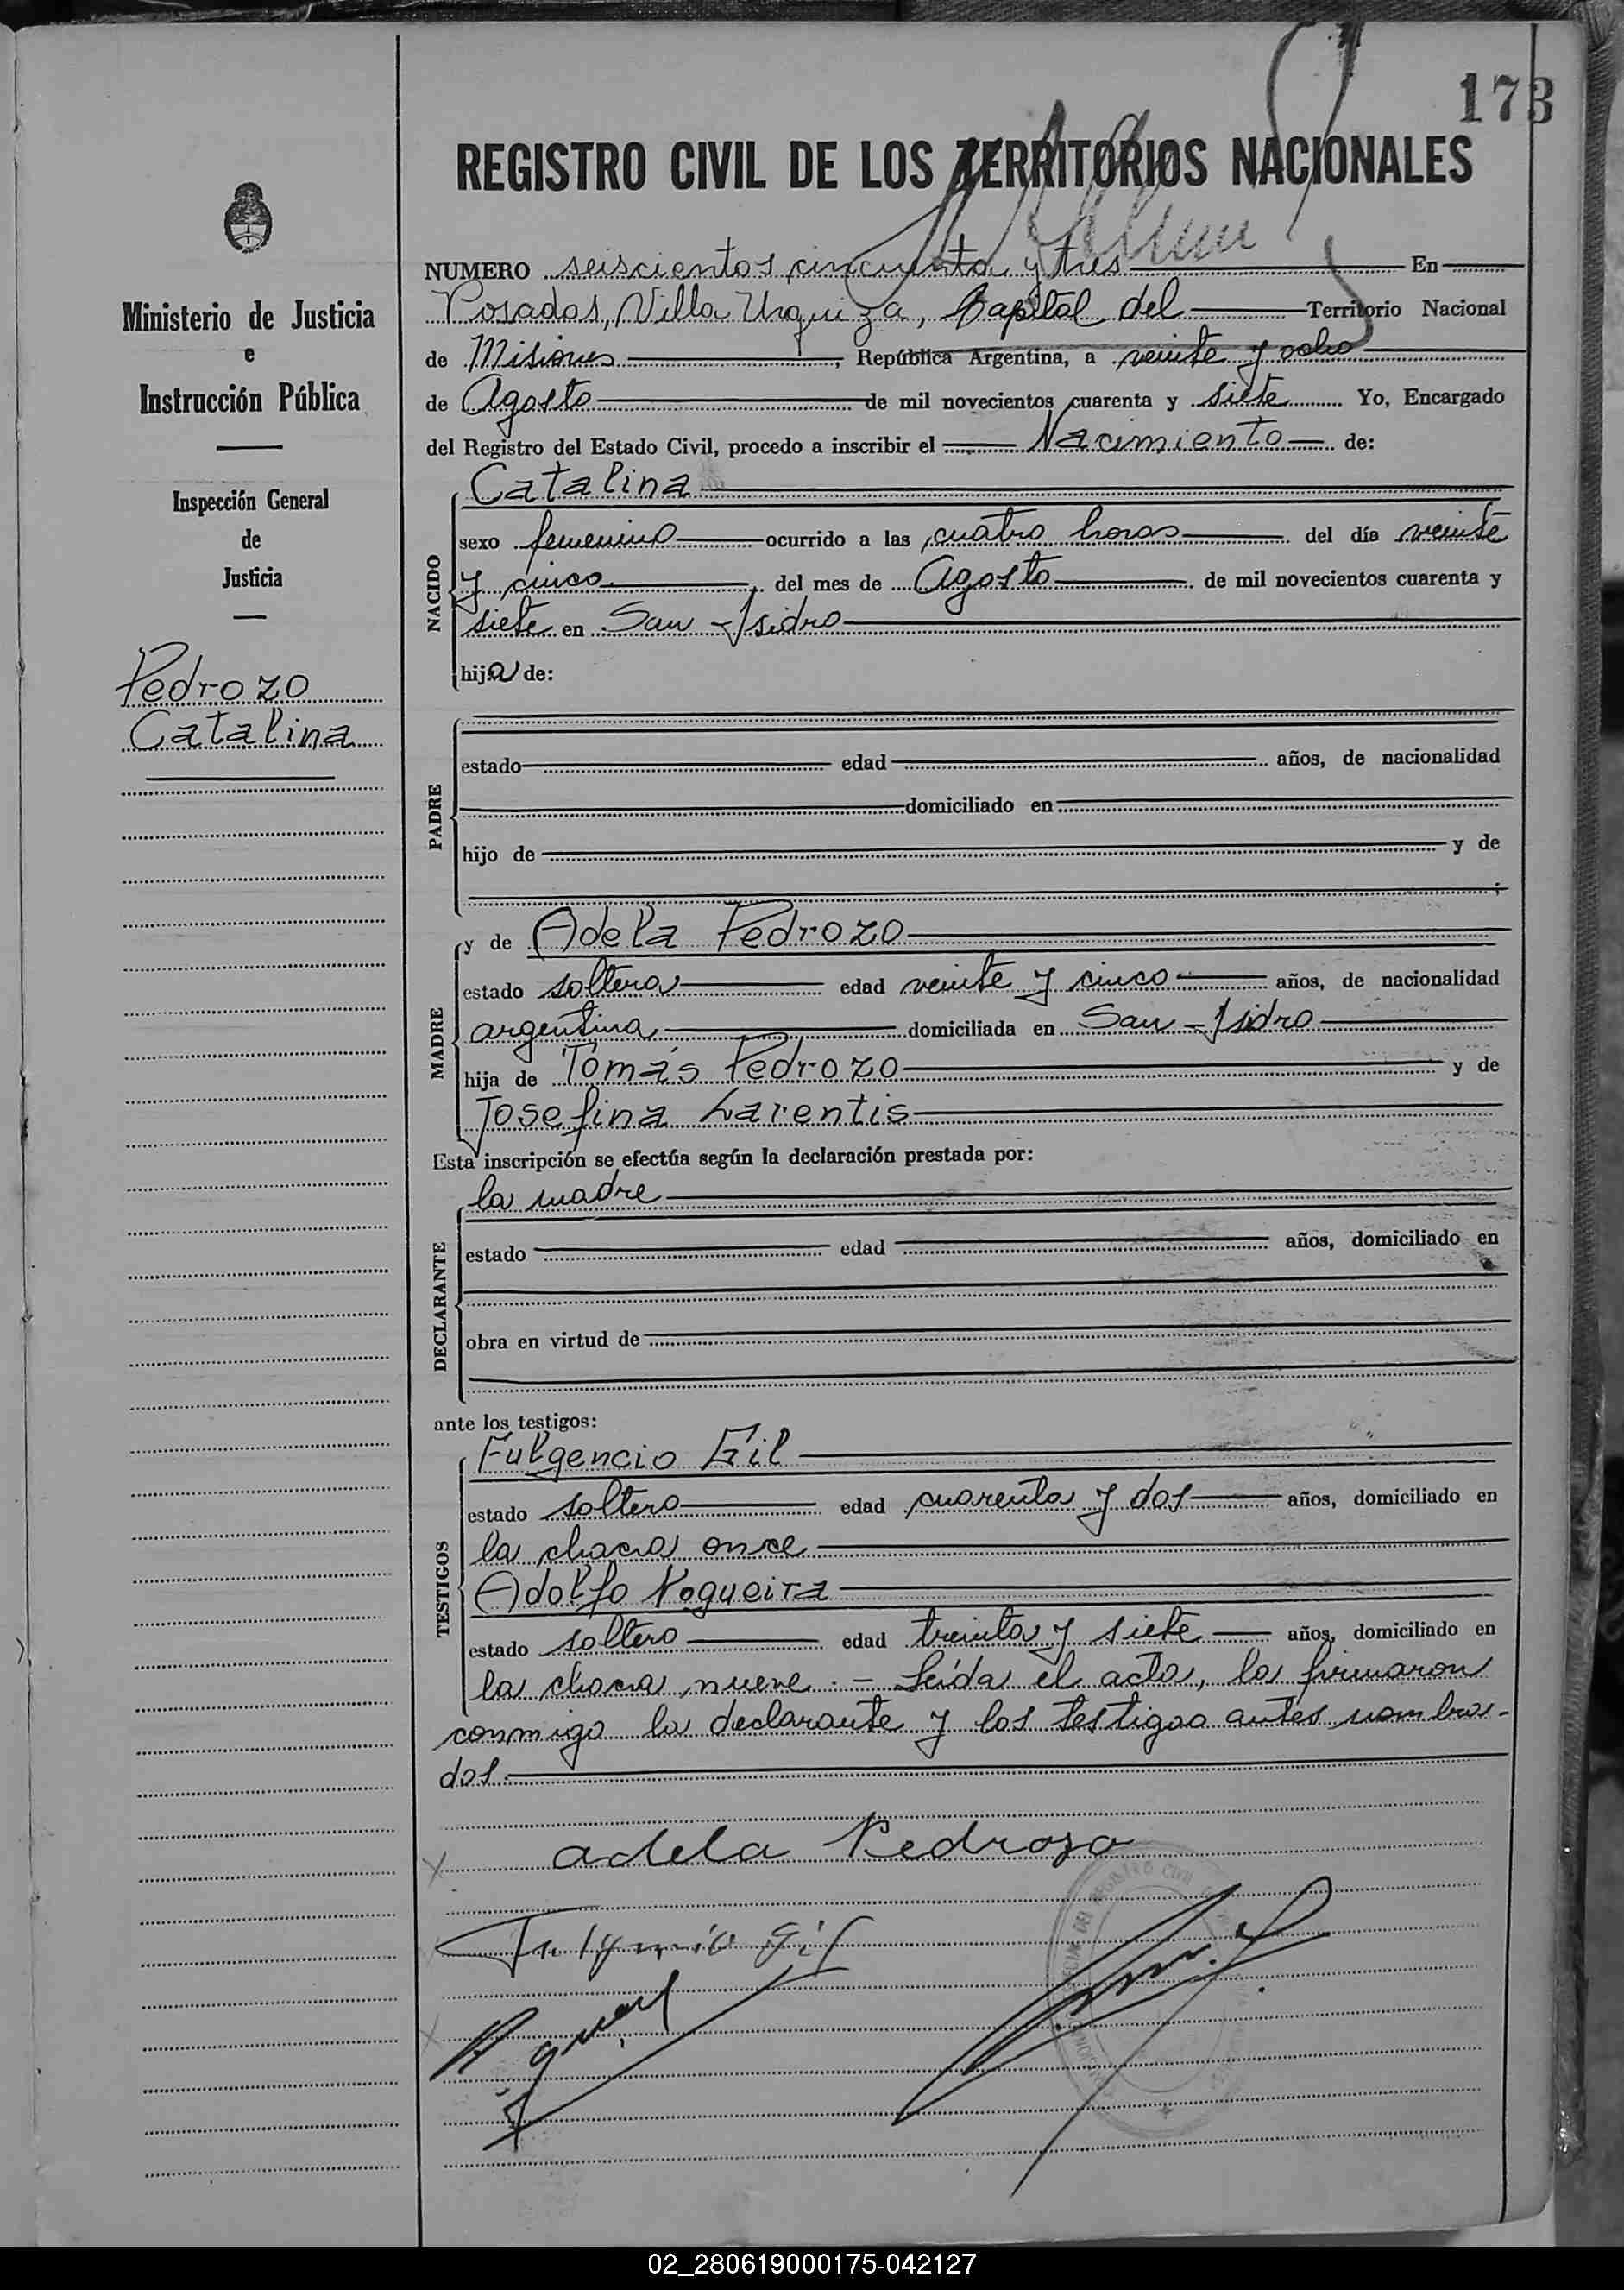 173
REGISTRO CIVIL DE LOS TERRITORIOS NACIONALES
Ministerio de Justicia
e
Instrucción Pública
Inspección General
de
Justicia
Pedrozo
Catalina
NUMERO seiscientos cincuenta y tres En
Posadas, Villa Urquiza, Capital del Territorio Nacional
de Misiones, República Argentina, a veinte y ocho
de Agosto de mil novecientos cuarenta y siete Yo, Encargado
del Registro del Estado Civil, procedo a inscribir el Nacimiento de:
NACIDO
Catalina
sexo femenino ocurrido a las cuatro horas del día veinte
y cinco, del mes de Agosto de mil novecientos cuarenta y
siete en San Isidro
hija de:
PADRE
estado edad años, de nacionalidad
domiciliado en
hijo de y de
;
MADRE
y de Adela Pedrozo
estado soltera edad veinte y cinco años, de nacionalidad
argentina domiciliada en San Isidro
hija de Tomás Pedrozo y de
Josefina Larentis
Esta inscripción se efectúa según la declaración prestada por:
DECLARANTE
la madre
estado edad años, domiciliado en
obra en virtud de
ante los testigos:
TESTIGOS
Fulgencio Gil
estado soltero edad cuarenta y dos años, domiciliado en
la chacra once
Adolfo Nogueira
estado soltero edad treinta y siete años, domiciliado en
la chacra nueve.- Leída el acta, la firmaron
conmigo la declarante y los testigos antes nombra-
dos.
adela Pedroso
Fulgencio Gil
02_280619000175-042127